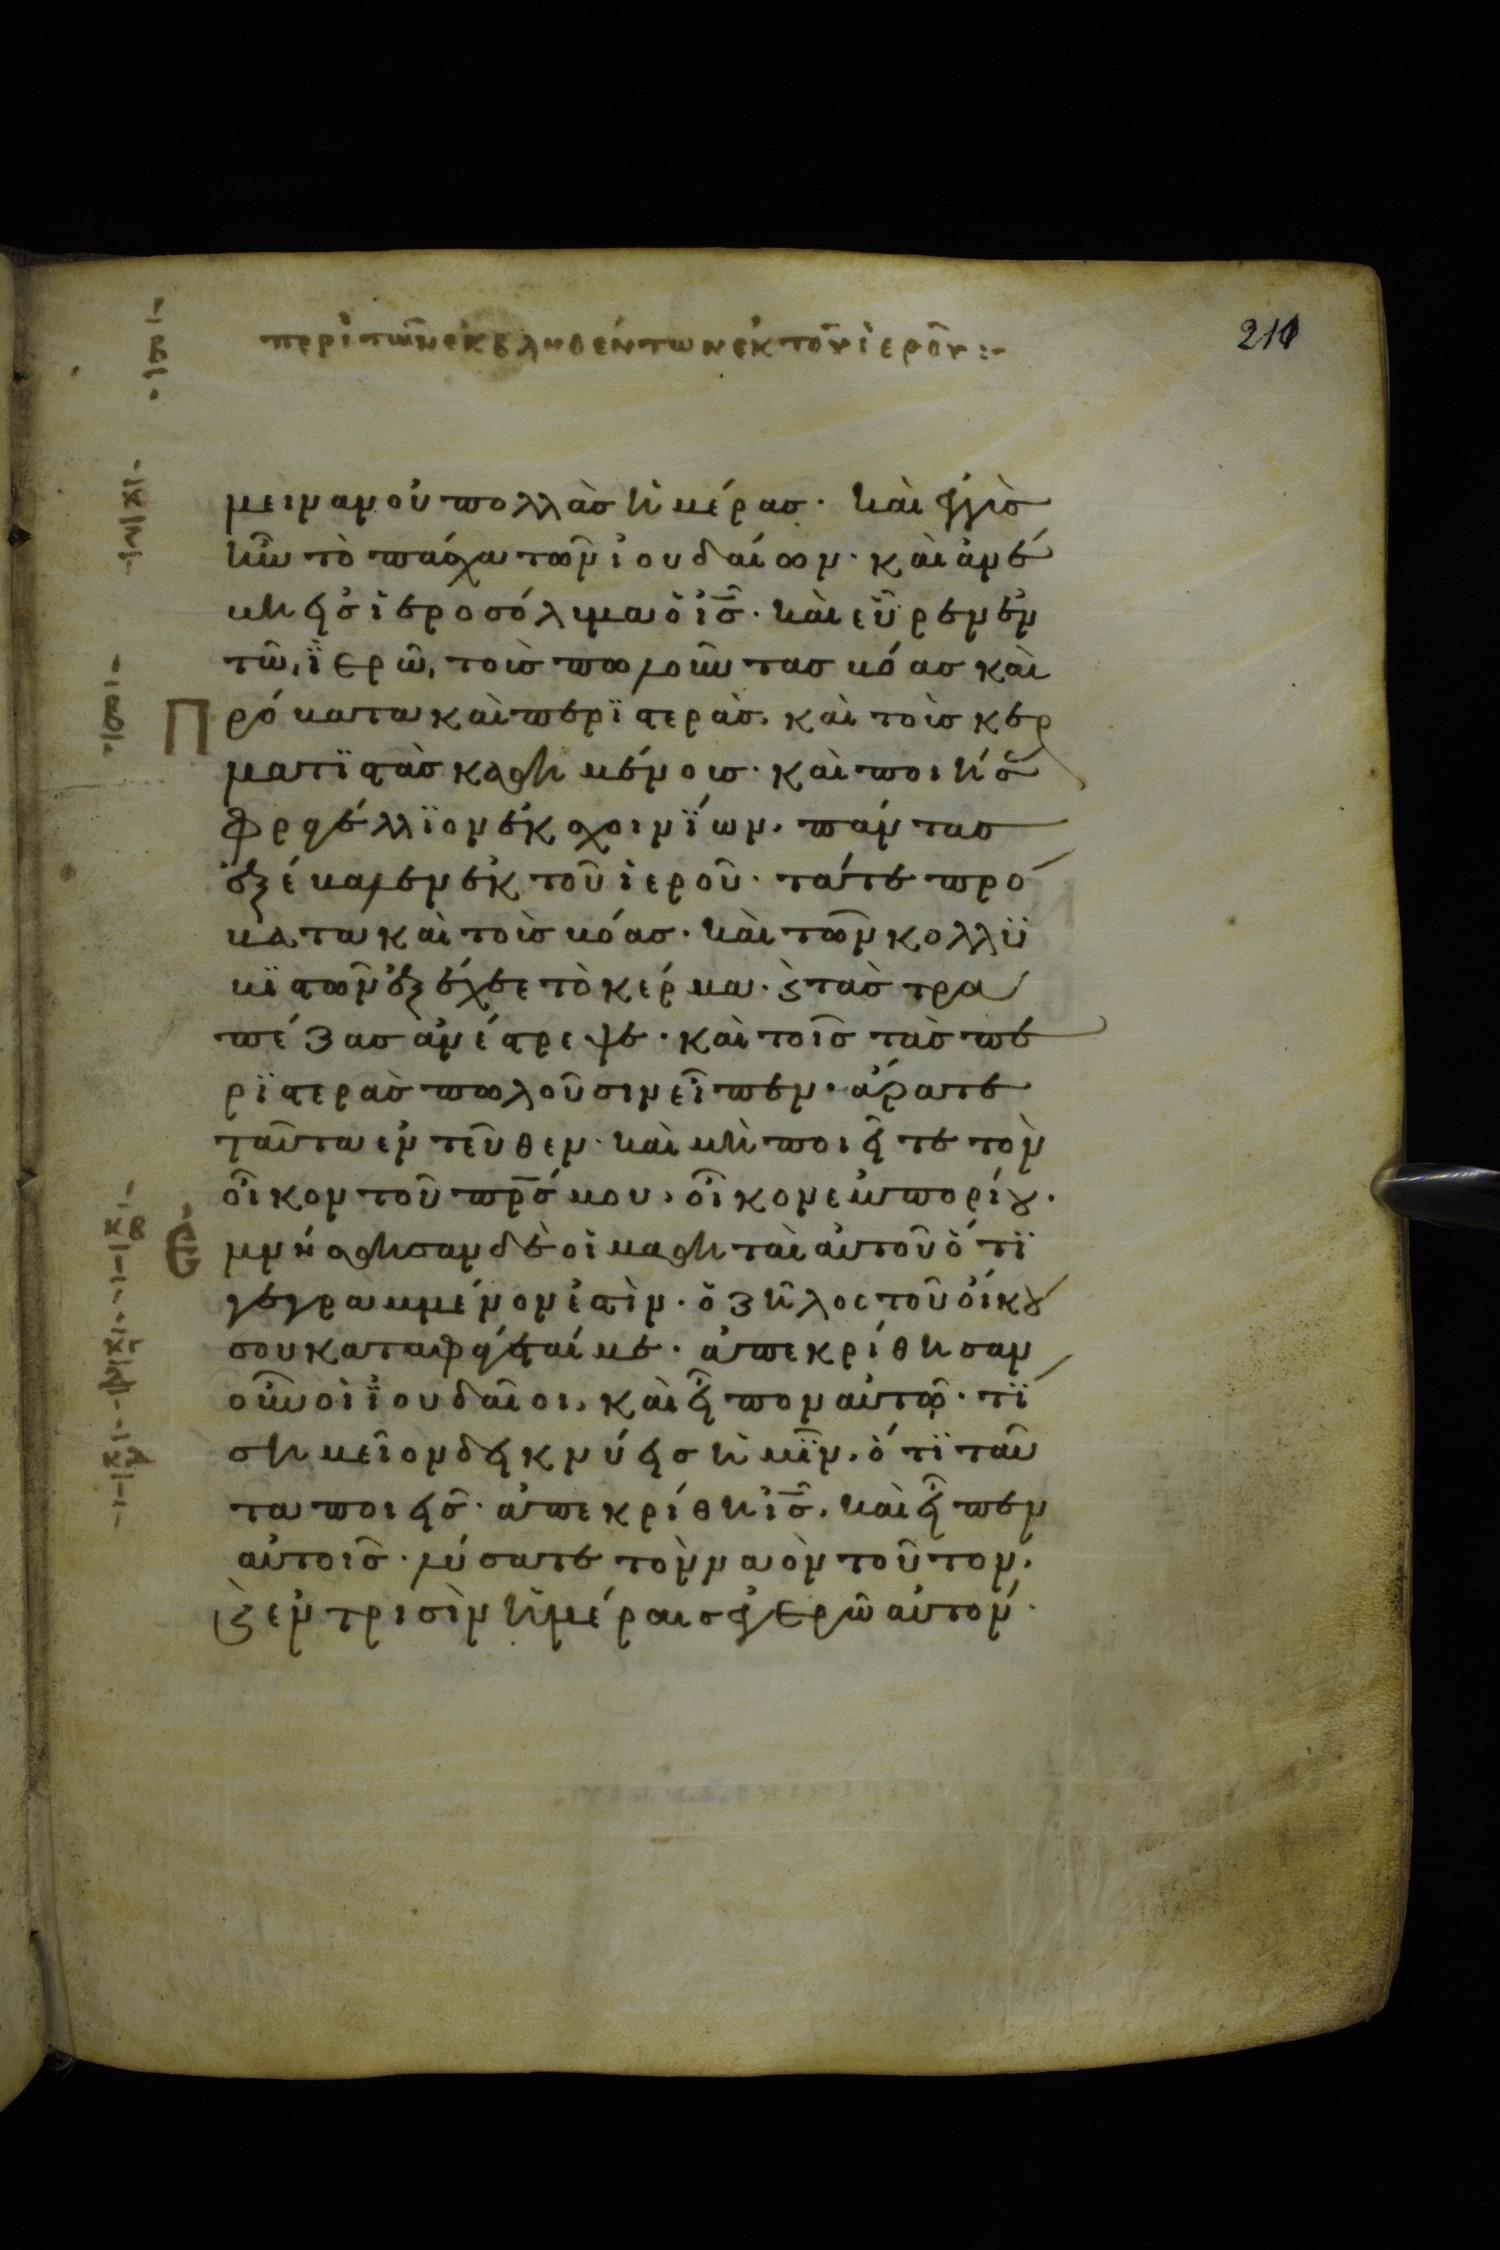 περὶ τῶν ἐκβληθέντων ἐκ τοῦ ἱεροῦ :-
211
μειναν οὐ πολλὰσ ἡμέρασ· καὶ ἐγγὺσ
ἦν τὸ πάσχα τῶν ἰουδαίων· καὶ ἀνέ
βη εἰσ ἱεροσόλυμα ὁ ἰ̅σ̅· καὶ εὗρεν ἐν
τῶ ἱερῶ, τοὺσ πωλοῦντασ βόασ καὶ
Πρόβατα καὶ περϊστεράσ, καὶ τοὺσ κερ
ματϊστὰσ καθημένουσ· καὶ ποιήσασ
φραγέλλϊον ἐκ σχοινΐων, πάντασ
ἐξέβαλεν ἐκ τοῦ ἱεροῦ· τά τε πρό
βατα καὶ τοὺσ βόασ· καὶ τῶν κολλϋ
βϊστῶν ἐξέχεε τὸ κέρμα· ϛ τὰσ τρα
πέζασ ἀνέστρεψε· καὶ τοῖσ τὰσ πε
ρϊστερὰσ πωλοῦσιν εἶπεν· ἄρατε
ταῦτα ἐντεῦθεν· καὶ μὴ ποιεῖτε τὸν
οἶκον τοῦ π̅ρ̅σ̅ μου, οἶκον ἐμπορίου.
Ἐμνήσθησαν δὲ οἱ μαθηταὶ αὐτοῦ ὅτϊ
γεγραμμένον ἐστὶν· ὁ ζῆλος τοῦ οἴκου
σου καταφάγεταί με· ἀπεκρίθησαν
οὖν οἱ ϊουδαῖοι, καὶ εἶπον αὐτῶ· τΐ
σημεῖον δεικνύεισ ἡμῖν, ὅτϊ ταῦ
τα ποιεῖσ· ἀπεκρίθη ἰ̅σ̅, καὶ εἶπεν
αὐτοῖσ· λύσατε τὸν ναὸν τοῦτον,
ϛ ἐν τρισὶν ἡμέραισ ἐγερῶ αὐτόν·